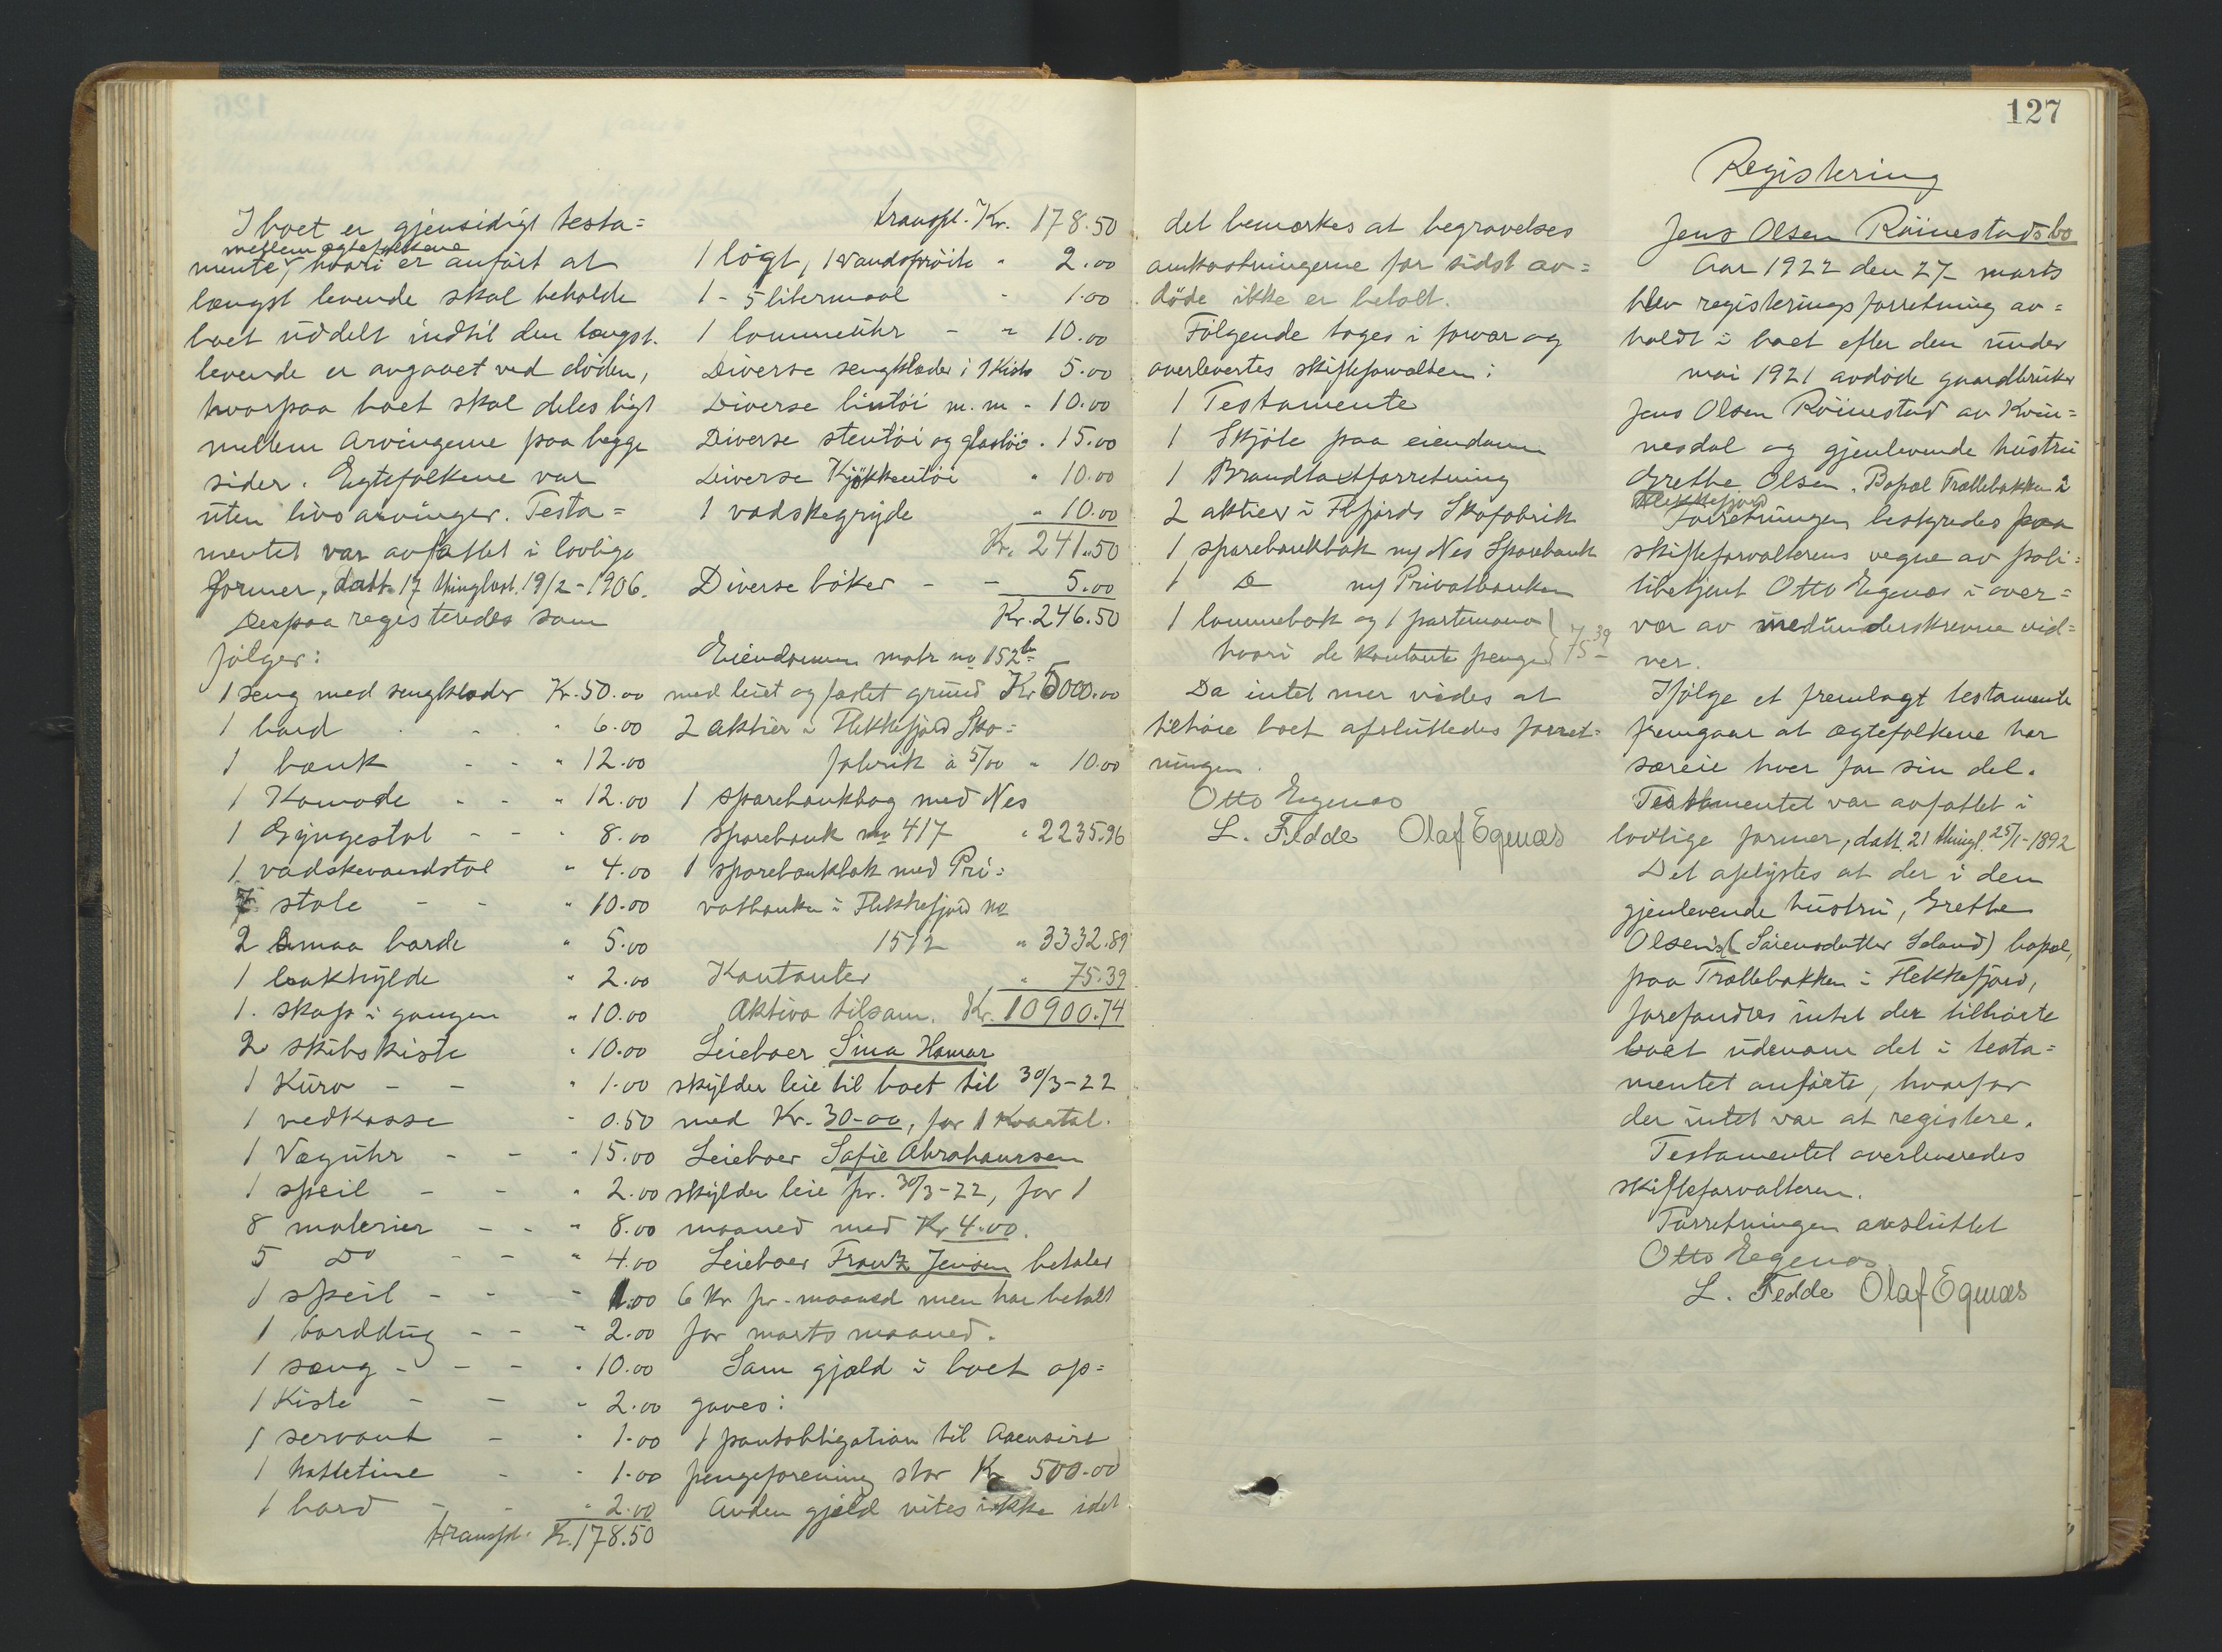 I boet er gjensidigt testa=
mellem egtefolkene
mente, hvori er anført at
længst levende skal beholde
boet uddelt indtil den længst-
levende er avgaaet ved døden,
hvorpaa boet skal deles ligt
mellem arvingerne paa begge
sider. Egtefolkene var
uten livsarvinger. Testa=
mentet var avfattet i lovlige
former, datt. 17 thinglæst. 19/2-1906.
Derpaa registeredes som
følger:
1 seng med sengklæder Kr. 50.00
1 bord " 6.00
1 bænk " 12.00
1 Komode " 12.00
1 Gyngestol " 8.00
1 vadskevandstol " 4.00
7 stole " 10.00
2 smaa borde " 5.00
1 bokhylde " 2.00
1 skap i gangen " 10.00
2 skibskiste " 10.00
1 Kurv " 1.00
1 vedkasse " 0.50
1 Væguhr " 15.00
1 speil " 2.00
8 malerier " 8.00
5 Do " 4.00
1 speil " 1.00
1 borddug " 2.00
1 sæng " 10.00
1 Kiste " 2.00
1 servant " 1.00
1 hatletine " 1.00
1 bord " 2.00
transpt. Kr. 178.50
transpt. Kr. 178.50
1 løgt, 1 vandsprøite " 2.00
1 - 5 litermaal " 1.00
1 lommeuhr " 10.00
Diverse sengklæder i 1 Kiste 5.00
Diverse lintøi m.m " 10.00
Diverse stentøi og glastøi " 15.00
Diverse Kjøkkentøi " 10.00
1 vadskegryde " 10.00
Kr. 241.50
Diverse bøker - - 5.00
Kr. 246.50
Eiendommen matr no 152 b
med leiet og fæstet grund Kr 5000.00
2 aktier i Flekkefjord Sko=
fabrik à 5/00 " 10.00
1 sparebankbog med Nes
sparebank no 417 " 2235.96
1 sparebankbok med Pri=
vatbanken i Flekkefjord no
1512 " 3332.89
Kontanter " 75.39
Aktiva tilsam. Kr. 10900.74
Leieboer Sina Hamar
skylder leie til boet til 30/3-22
med Kr. 30-00, for 1 Kvartal.
Leieboer Sofie Abrahamsen
skylder leie pr. 30/3-22, for 1
maaned med Kr 4.00.
Leieboer Frantz Jensen betaler
6 Kr pr. maaned men har betalt
for marts maaned.
Som gjæld i boet op=
gaves:
1 pantobligation til Aaensire
pengeforening stor Kr 500.00
Anden gjeld vites ikke idet
det bemærkes at begravelses
omkostningerne for sidst av=
døde ikke er betalt.
Følgende toges i forvar og
overlevertes skifteforvalteren:
1 Testamente
1 Skjøte paa eiendom
1 Brandtaxtforretning
2 aktier i Flfjords Skofabrik
1 sparebankbok m/ Nes Sparebank
1 Do m/ Privatbanken
1 lommebok og 1 partemona
hvori de kontante penger 75.39
Da intet mer vides at
tilhøre boet afsluttedes forret=
ningen.
Otto Egenæs
L. Fedde Olaf Egenæs
127
Registering
Jens Olsen Röinestads bo
Aar 1922 den 27 marts
blev registeringsforretning av=
holdt i boet efter den under
mai 1921 avdøde gaardbruker
Jens Olsen Röinestad av Kvin=
nesdal og gjenlevende hustru
Grethe Olsen. Bopæl Trællebakken i
Flekkefjord
Forretningen bestyredes paa
skifteforvalterens vegne av poli=
tibetjent Otto Egenæs i over=
vær av medunderskrevne vid=
ner.
Ifølge et fremlagt testamente
fremgaar at ægtefolkene har
særeie hver for sin del.
Testamentet var avfattet i
lovlige former, datt. 21 thingl. 25/1-1892
Det oplystes at der i den
gjenlevende hustru, Grethe
Olsens (Sørensdatter Seland) bopæl,
paa Trællebakken i Flekkefjord,
forefandtes intet der tilhørte
boet udenom det i testa=
mentet anførte, hvorfor
der intet var at registere.
Testamentet overleveredes
skifteforvalteren.
Forretningen avsluttet
Otto Egenæs
L. Fedde Olaf Egenæs